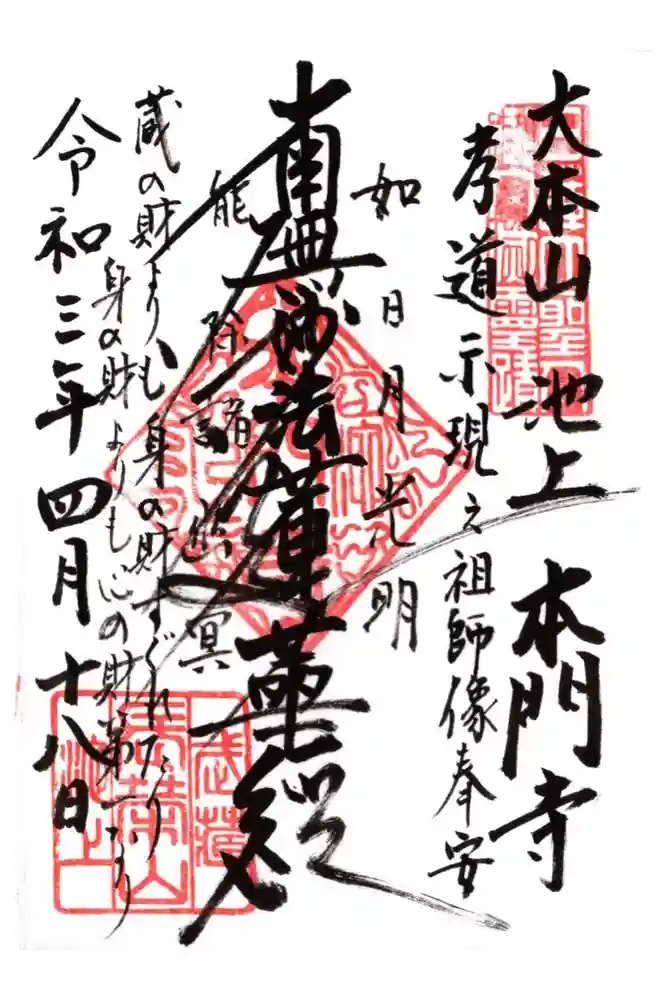 大本山 池上 本門寺
孝道示現之祖師像奉安
如日月光明
南無妙法蓮華経
能除諸幽冥
蔵の財よりも身の財すぐれたり
身の財よりも心の財第一なり
令和三年四月十八日
武蔵
長榮山
池上